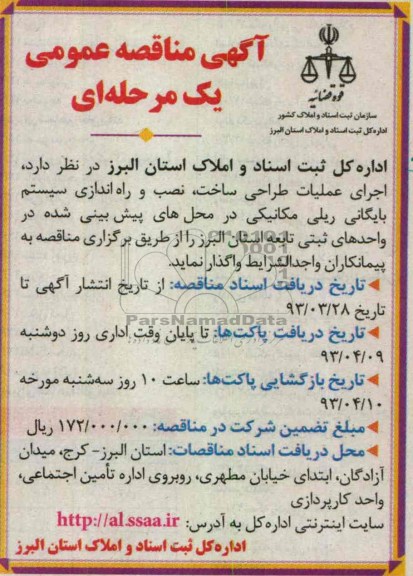 آگهی مناقصه عمومی
یک مرحله‌ای
قوه قضائیه
سازمان ثبت اسناد و املاک کشور
اداره کل ثبت اسناد و املاک استان البرز
اداره کل ثبت اسناد و املاک استان البرز در نظر دارد،
اجرای عملیات طراحی ساخت، نصب و راه اندازی سیستم
بایگانی ریلی مکانیکی در محل های پیش بینی شده در
واحدهای ثبتی تابعه استان البرز را از طریق برگزاری مناقصه به
پیمانکاران واجدالشرایط واگذار نماید.
◀تاریخ دریافت اسناد مناقصه: از تاریخ انتشار آگهی تا
تاریخ ۹۳/۰۳/۲۸
◀تاریخ دریافت پاکت‌ها: تا پایان وقت اداری روز دوشنبه
۹۳/۰۴/۰۹
◀تاریخ بازگشایی پاکت‌ها: ساعت ۱۰ روز سه‌شنبه مورخه
۹۳/۰۴/۱۰
◀مبلغ تضمین شرکت در مناقصه: ۱۷۲/۰۰۰/۰۰۰ ریال
◀محل دریافت اسناد مناقصات: استان البرز- کرج، میدان
آزادگان، ابتدای خیابان مطهری، روبروی اداره تأمین اجتماعی،
واحد کارپردازی
سایت اینترنتی اداره‌کل به آدرس: http://al.ssaa.ir
اداره کل ثبت اسناد و املاک استان البرز
ParsNamadData